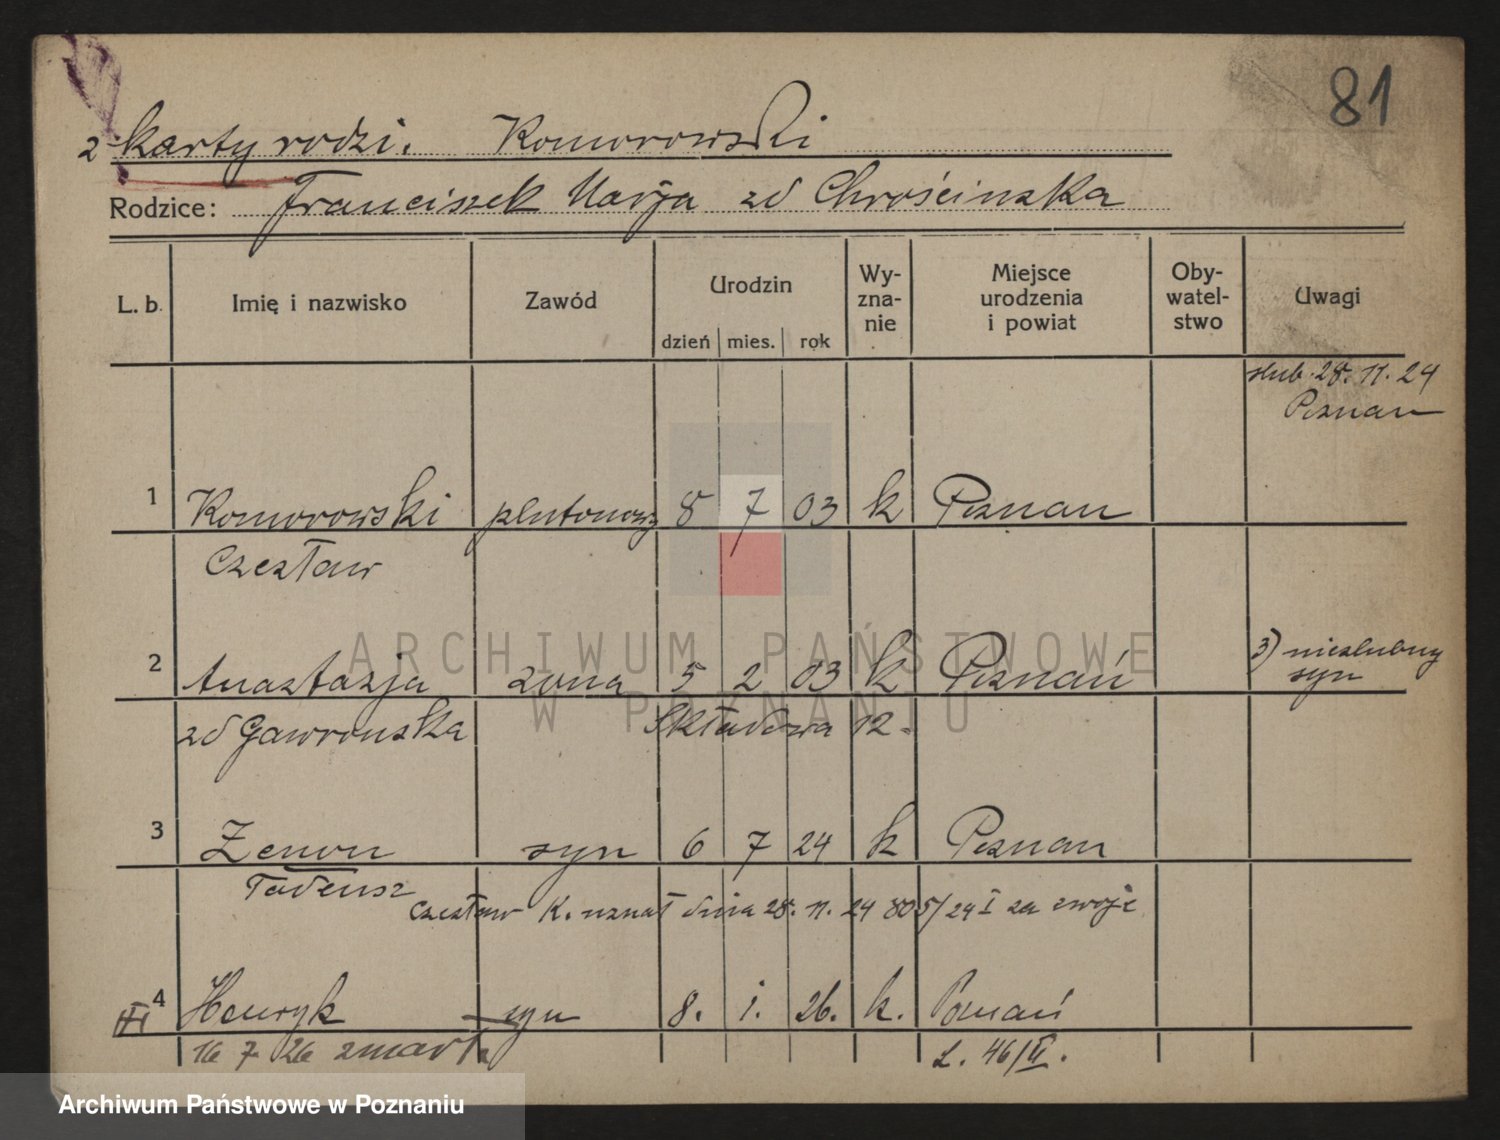 81
2 karty rodzi. Komorowski
Rodzice: Franciszek Marja zd Chrościnska
L. b. Imię i nazwisko Zawód Urodzin dzień mies. rok Wy-zna-nie Miejsce urodzenia i powiat Oby-watel-stwo Uwagi
slub. 28. 11. 24
Poznan
1 Komorowski plutonowy 8 7 03 k Poznan
Czesław
3) nieslubny
syn
2 Anastazja zona 5 2 03 k Poznań
zd Gawronska Składowa 12.
3 Zenon syn 6 7 24 k Poznan
Tadeusz
Czesław K. uznał dnia 28. 11. 24 805/24 I za swoje
4 Henryk syn 8. 1. 26. k. Poznań
16 7 26 zmarł L. 46/II.
ARCHIWUM PAŃSTWOWE
W POZNANIU
Archiwum Państwowe w Poznaniu